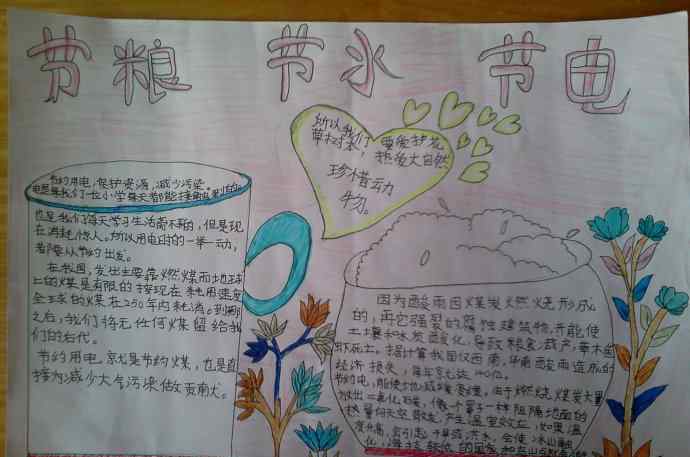 节粮 节水 节电
所以我们 要爱护花
草树木, 热爱大自然
珍惜动
物。
节约用电,保护资源,减少污染。
也是我们每天学习生活离不开的,但是现
在消耗惊人。所以用电时的一举一动,
都要从节约出发。
在我国,发出主要靠燃煤而地球
上的煤是有限的按现在耗用速度
全球的煤在250年内耗消。到那
之后,我们将无任何煤留给我
们的后代。
节约用电,就是节约煤,也是直
接为减少大气污染做贡献大。
因为酸雨因煤炭燃烧形成
的,再它强裂的腐蚀建筑物,并能使
土壤和水发酸化,导致粮食减产,草木鱼
虾死亡。据计算我国仅西南,华南酸雨造成的
经济损失,每年京尤达140亿。
节约电,能使全地减缓变暖。由于燃烧煤炭大量
放出二氧化碳,像个罩子一样阻隔地面的
热量向天空散发,产生温室效应,如果温
度升高,会引起干旱